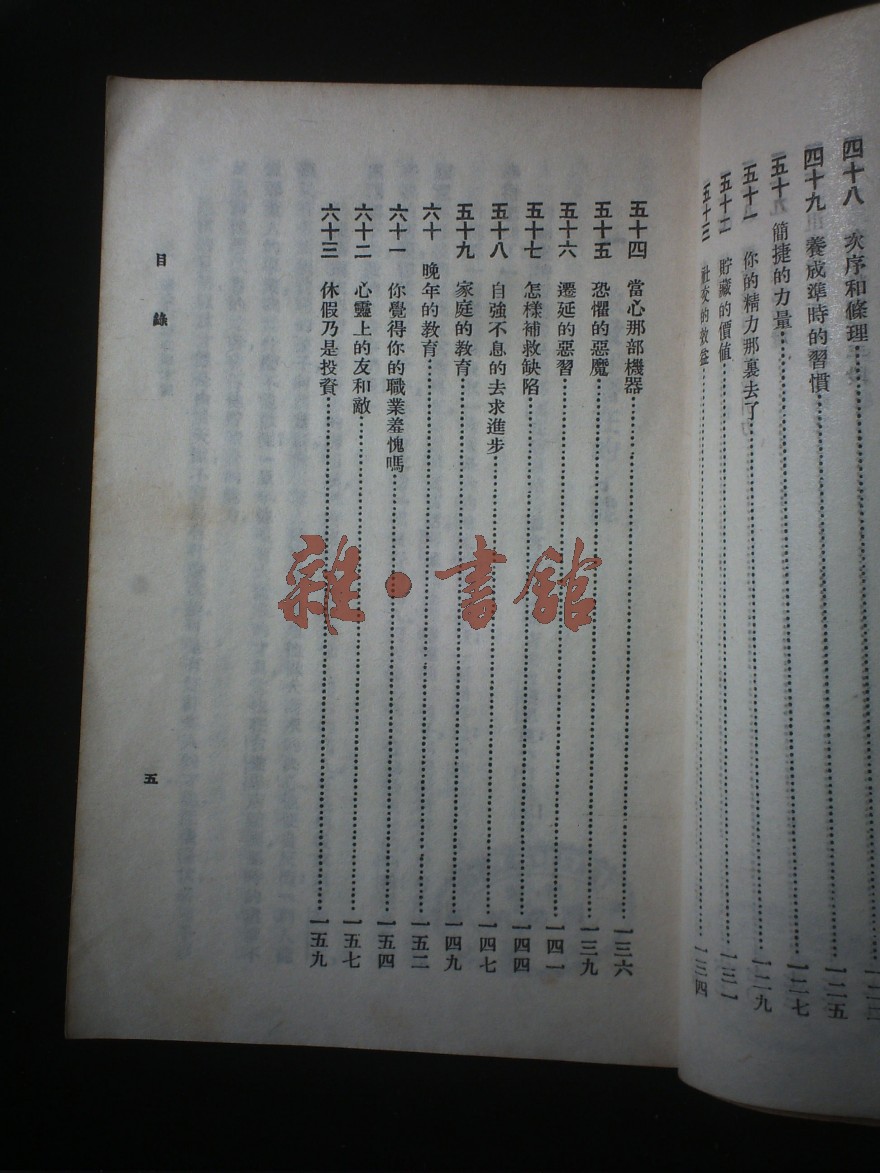 四十八 次序和條理
四十九 養成準時的習慣……一二五
五十 簡捷的力量……一二七
五十一 你的精力那裏去了……一二九
五十二 貯藏的價値……一三一
五十三 社交的效益……一三四
五十四 當心那部機器……一三六
五十五 恐懼的惡魔……一三九
五十六 遷延的惡習……一四一
五十七 怎樣補救缺陷……一四四
五十八 自強不息的去求進步……一四七
五十九 家庭的教育……一四九
六十 晚年的教育……一五二
六十一 你覺得你的職業羞愧嗎……一五四
六十二 心靈上的友和敵……一五七
六十三 休假乃是投資……一五九
目錄
五
雜·書館